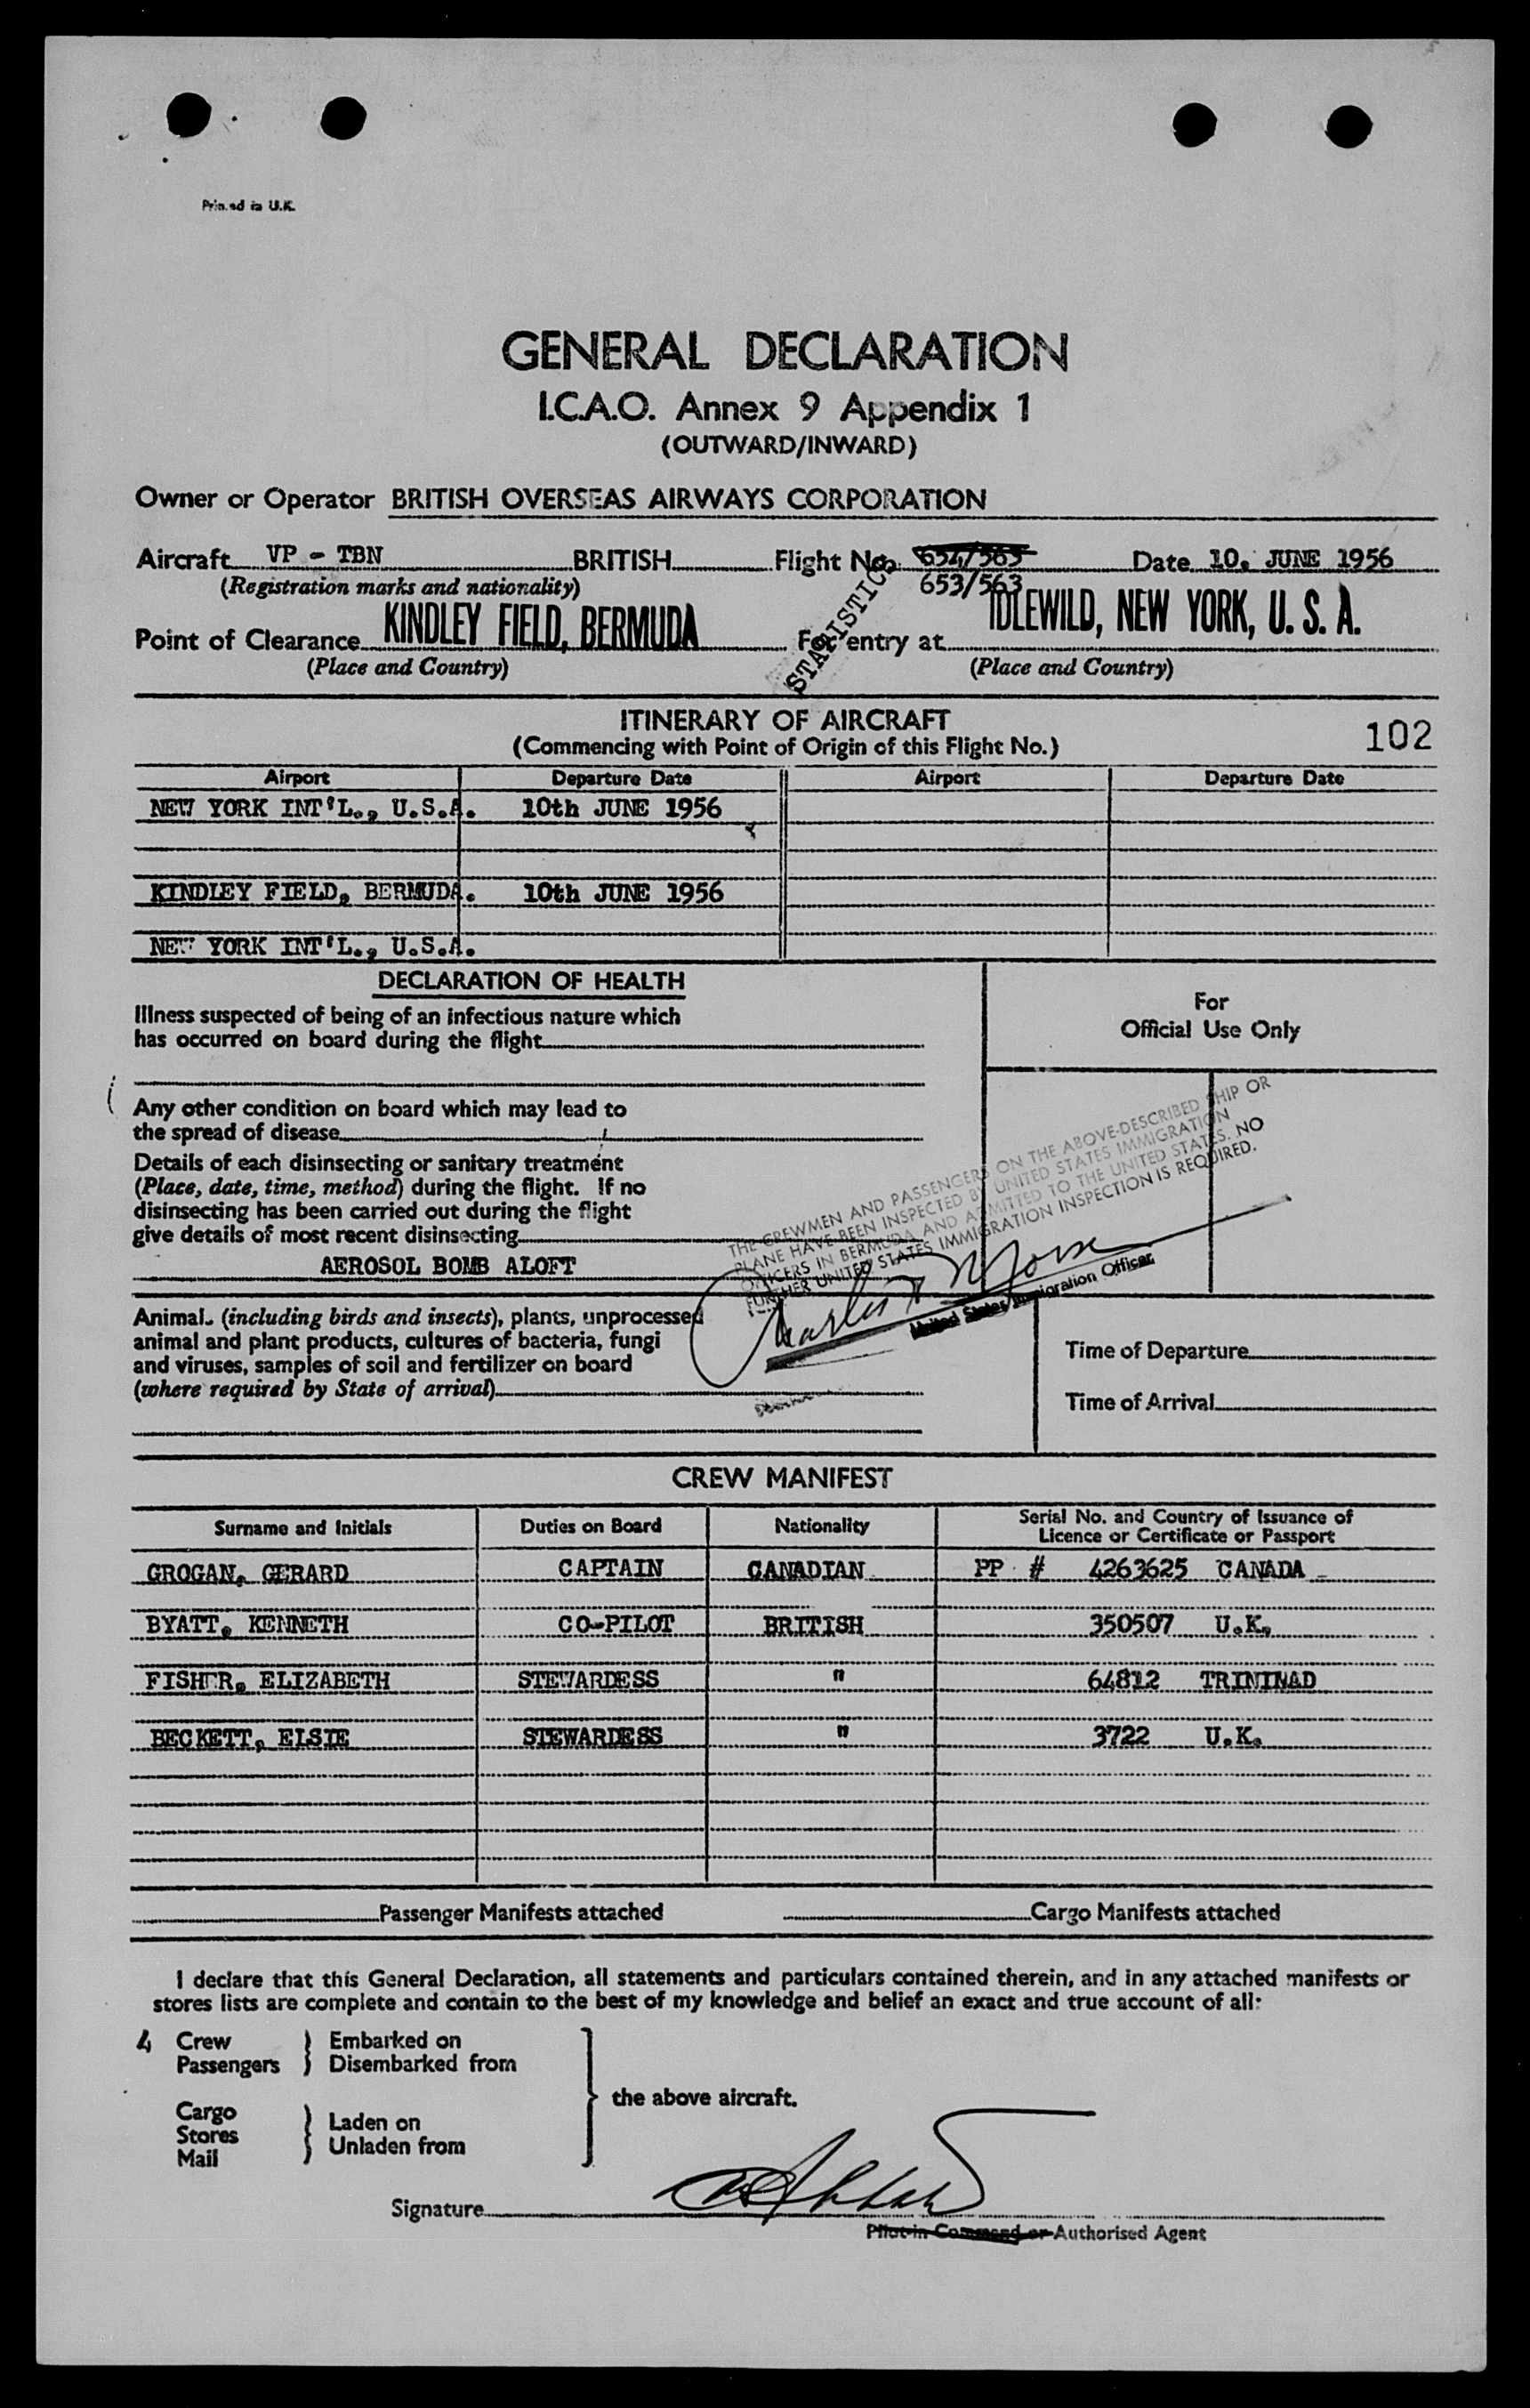 Printed in U.K.
GENERAL DECLARATION
I.C.A.O. Annex 9 Appendix 1
(OUTWARD/INWARD)
Owner or Operator BRITISH OVERSEAS AIRWAYS CORPORATION
Aircraft VP - TBN BRITISH Flight No. 654/563 Date 10. JUNE 1956
(Registration marks and nationality) 653/563
STATISTICS
Point of Clearance KINDLEY FIELD, BERMUDA For entry at IDLEWILD, NEW YORK, U. S. A.
(Place and Country) (Place and Country)
ITINERARY OF AIRCRAFT
(Commencing with Point of Origin of this Flight No.) 102
Airport Departure Date Airport Departure Date
NEW YORK INT'L., U.S.A. 10th JUNE 1956
KINDLEY FIELD, BERMUDA. 10th JUNE 1956
NEW YORK INT'L., U.S.A.
DECLARATION OF HEALTH
For
Official Use Only
Illness suspected of being of an infectious nature which
has occurred on board during the flight
Any other condition on board which may lead to
the spread of disease
Details of each disinsecting or sanitary treatment
(Place, date, time, method) during the flight. If no
disinsecting has been carried out during the flight
give details of most recent disinsecting
AEROSOL BOMB ALOFT
THE CREWMEN AND PASSENGERS ON THE ABOVE-DESCRIBED SHIP OR
PLANE HAVE BEEN INSPECTED BY UNITED STATES IMMIGRATION
OFFICERS IN BERMUDA AND ADMITTED TO THE UNITED STATES. NO
FURTHER UNITED STATES IMMIGRATION INSPECTION IS REQUIRED.
Charles Morse
United States Immigration Officer
Animal. (including birds and insects), plants, unprocessed
animal and plant products, cultures of bacteria, fungi
and viruses, samples of soil and fertilizer on board
(where required by State of arrival)
Time of Departure
Time of Arrival
CREW MANIFEST
Surname and Initials Duties on Board Nationality Serial No. and Country of Issuance of
Licence or Certificate or Passport
GROGAN, GERARD CAPTAIN CANADIAN PP # 4263625 CANADA
BYATT, KENNETH CO-PILOT BRITISH 350507 U.K.
FISHER, ELIZABETH STEWARDESS " 64812 TRININAD
BECKETT, ELSIE STEWARDESS " 3722 U.K.
Passenger Manifests attached Cargo Manifests attached
I declare that this General Declaration, all statements and particulars contained therein, and in any attached manifests or
stores lists are complete and contain to the best of my knowledge and belief an exact and true account of all:
4 Crew Embarked on
Passengers Disembarked from
the above aircraft.
Cargo
Stores
Mail
Laden on
Unladen from
Signature
Pilot in Command or Authorised Agent